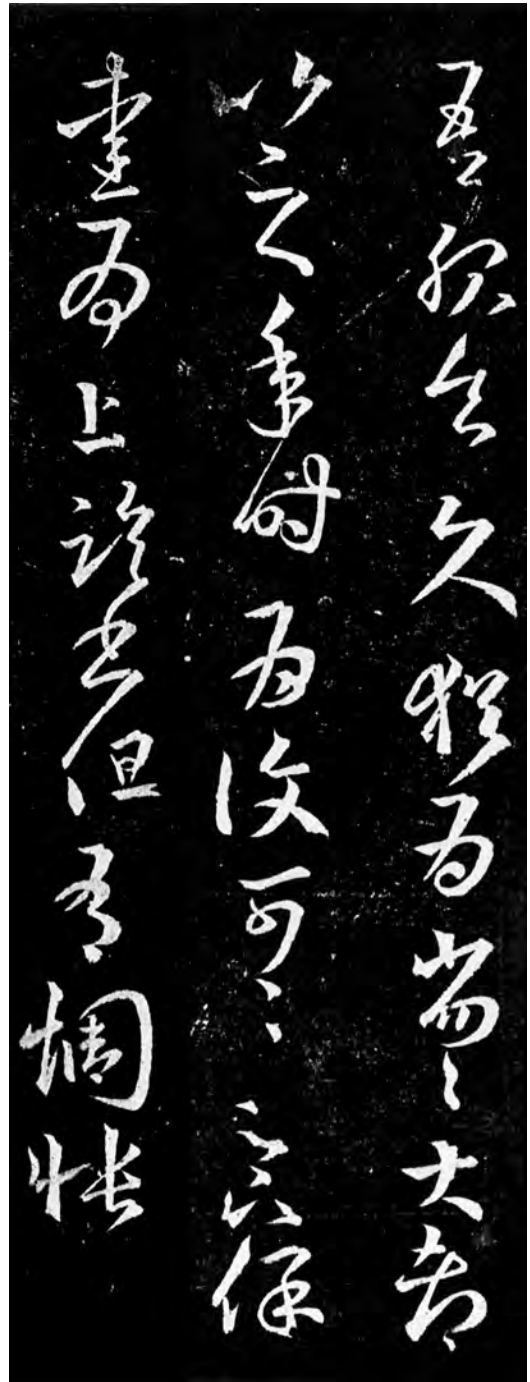 吾服食久猶為劣劣大都
比之年時為復可可足下保
愛為上臨書但有惆悵